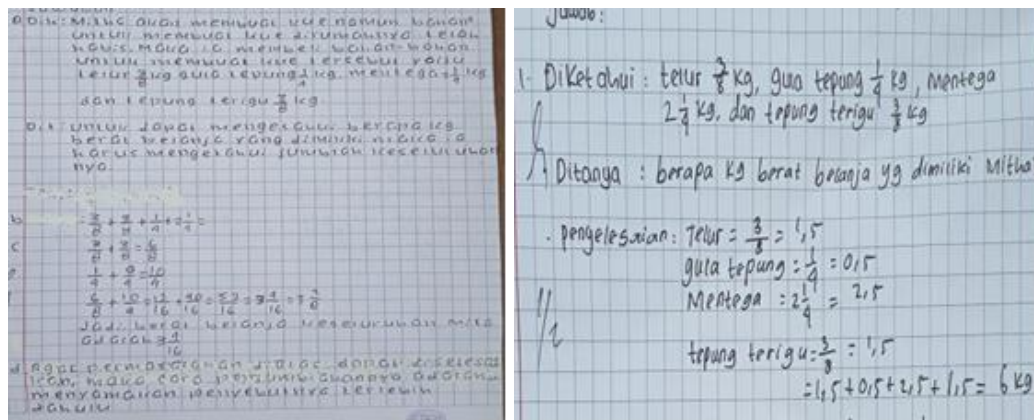 Dik: Mitha akan membuat kue namun bahan
untuk membuat kue dirumahnya telah
habis. Maka ia membeli bahan-bahan
untuk membuat kue tersebut yaitu
telur 3/8 kg gula tepung 1/4 kg, mentega 2 1/4 kg
dan tepung terigu 3/8 kg
Dit: untuk dapat mengetahui berapa kg
berat belanja yang dimiliki mitha ia
harus mengetahui jumblah keseluruhan
nya.
b = 3/8 + 3/8 + 1/4 + 2 1/4 =
c 3/8 + 3/8 = 6/8
1/4 + 9/4 = 10/4
Jadi berat belanja keseluruhan
adalah
d agar permasalahan diatas dapat diselesai
kan, maka cara
menyamakan penyebutnya terlebih
dahulu
Jawab:
1. Diketahui: telur 3/8 kg, gula tepung 1/4 kg, mentega
2 1/4 kg, dan tepung terigu 3/8 kg
Ditanya: berapa kg berat belanja yg dimiliki Mitha
. penyelesaian: Telur = 3/8 = 1,5
gula tepung = 1/4 = 0,5
Mentega = 2 1/4 = 2,5
tepung terigu = 3/8 = 1,5
= 1,5 + 0,5 + 2,5 + 1,5 = 6 kg